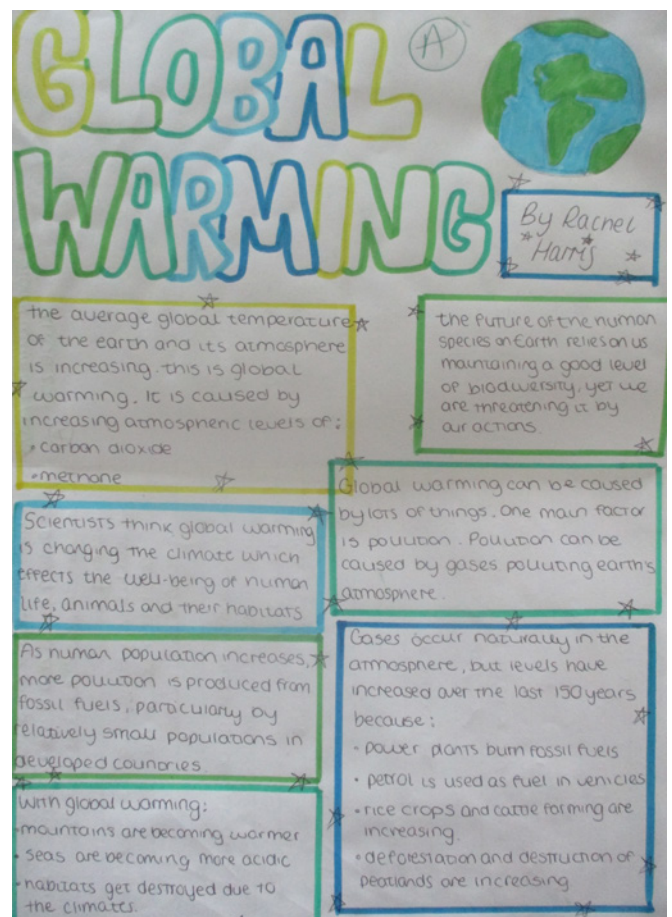 GLOBAL
A
WARMING
By Rachel
Harris
the average global temperature
of the earth and its atmosphere
is increasing. this is global
warming. It is caused by
increasing atmospheric levels of:
• carbon dioxide
• methane
the future of the human
species on Earth relies on us
maintaining a good level
of biodiversity, yet we
are threatening it by
our actions.
Global warming can be caused
by lots of things. One main factor
is pollution. Pollution can be
caused by gases polluting earth's
atmosphere.
Scientists think global warming
is changing the climate which
effects the well-being of human
life, animals and their habitats
As human population increases,
more pollution is produced from
fossil fuels, particularly by
relatively small populations in
developed countries
Gases occur naturally in the
atmosphere, but levels have
increased over the last 150 years
because:
• power plants burn fossil fuels
• petrol is used as fuel in vehicles
• rice crops and cattle farming are
increasing.
• deforestation and destruction of
peatlands are increasing
With global warming:
• mountains are becoming warmer
• seas are becoming more acidic
• habitats get destroyed due to
the climates.